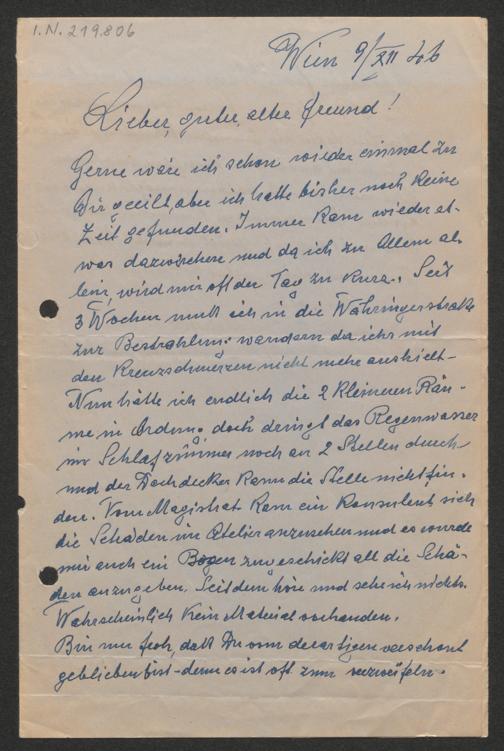 I.N. 219.806
Wien 9/XII 46
Lieber, guter, alter Freund!
Gerne wäre ich schon wieder einmal zu
Dir geeilt, aber ich hatte bisher noch keine
Zeit gefunden. Immer kam wieder et-
was dazwischen und da ich zu Allem al-
lein, wird mir oft der Tag zu kurz. Seit
3 Wochen muß ich in die Währingerstraße
zur Bestrahlung wandern da ichs mit
den Kreuzschmerzen nicht mehr aushielt-
Nun hätte ich endlich die 2 kleineren Räu-
me in Ordnung doch dringt das Regenwasser
im Schlafzimmer noch an 2 Stellen durch
und der Dachdecker kann die Stelle nicht fin-
den. Vom Magistrat kam ein Konsulent sich
die Schäden im Atelier anzusehen und es wurde
mir auch ein Bogen zugeschickt all die Schä-
den anzugeben. Seitdem höre und sehe ich nichts.
Wahrscheinlich kein Material vorhanden.
Bin nur froh, daß Du von derartigen verschont
geblieben bist - denn es ist oft zum verzweifeln.